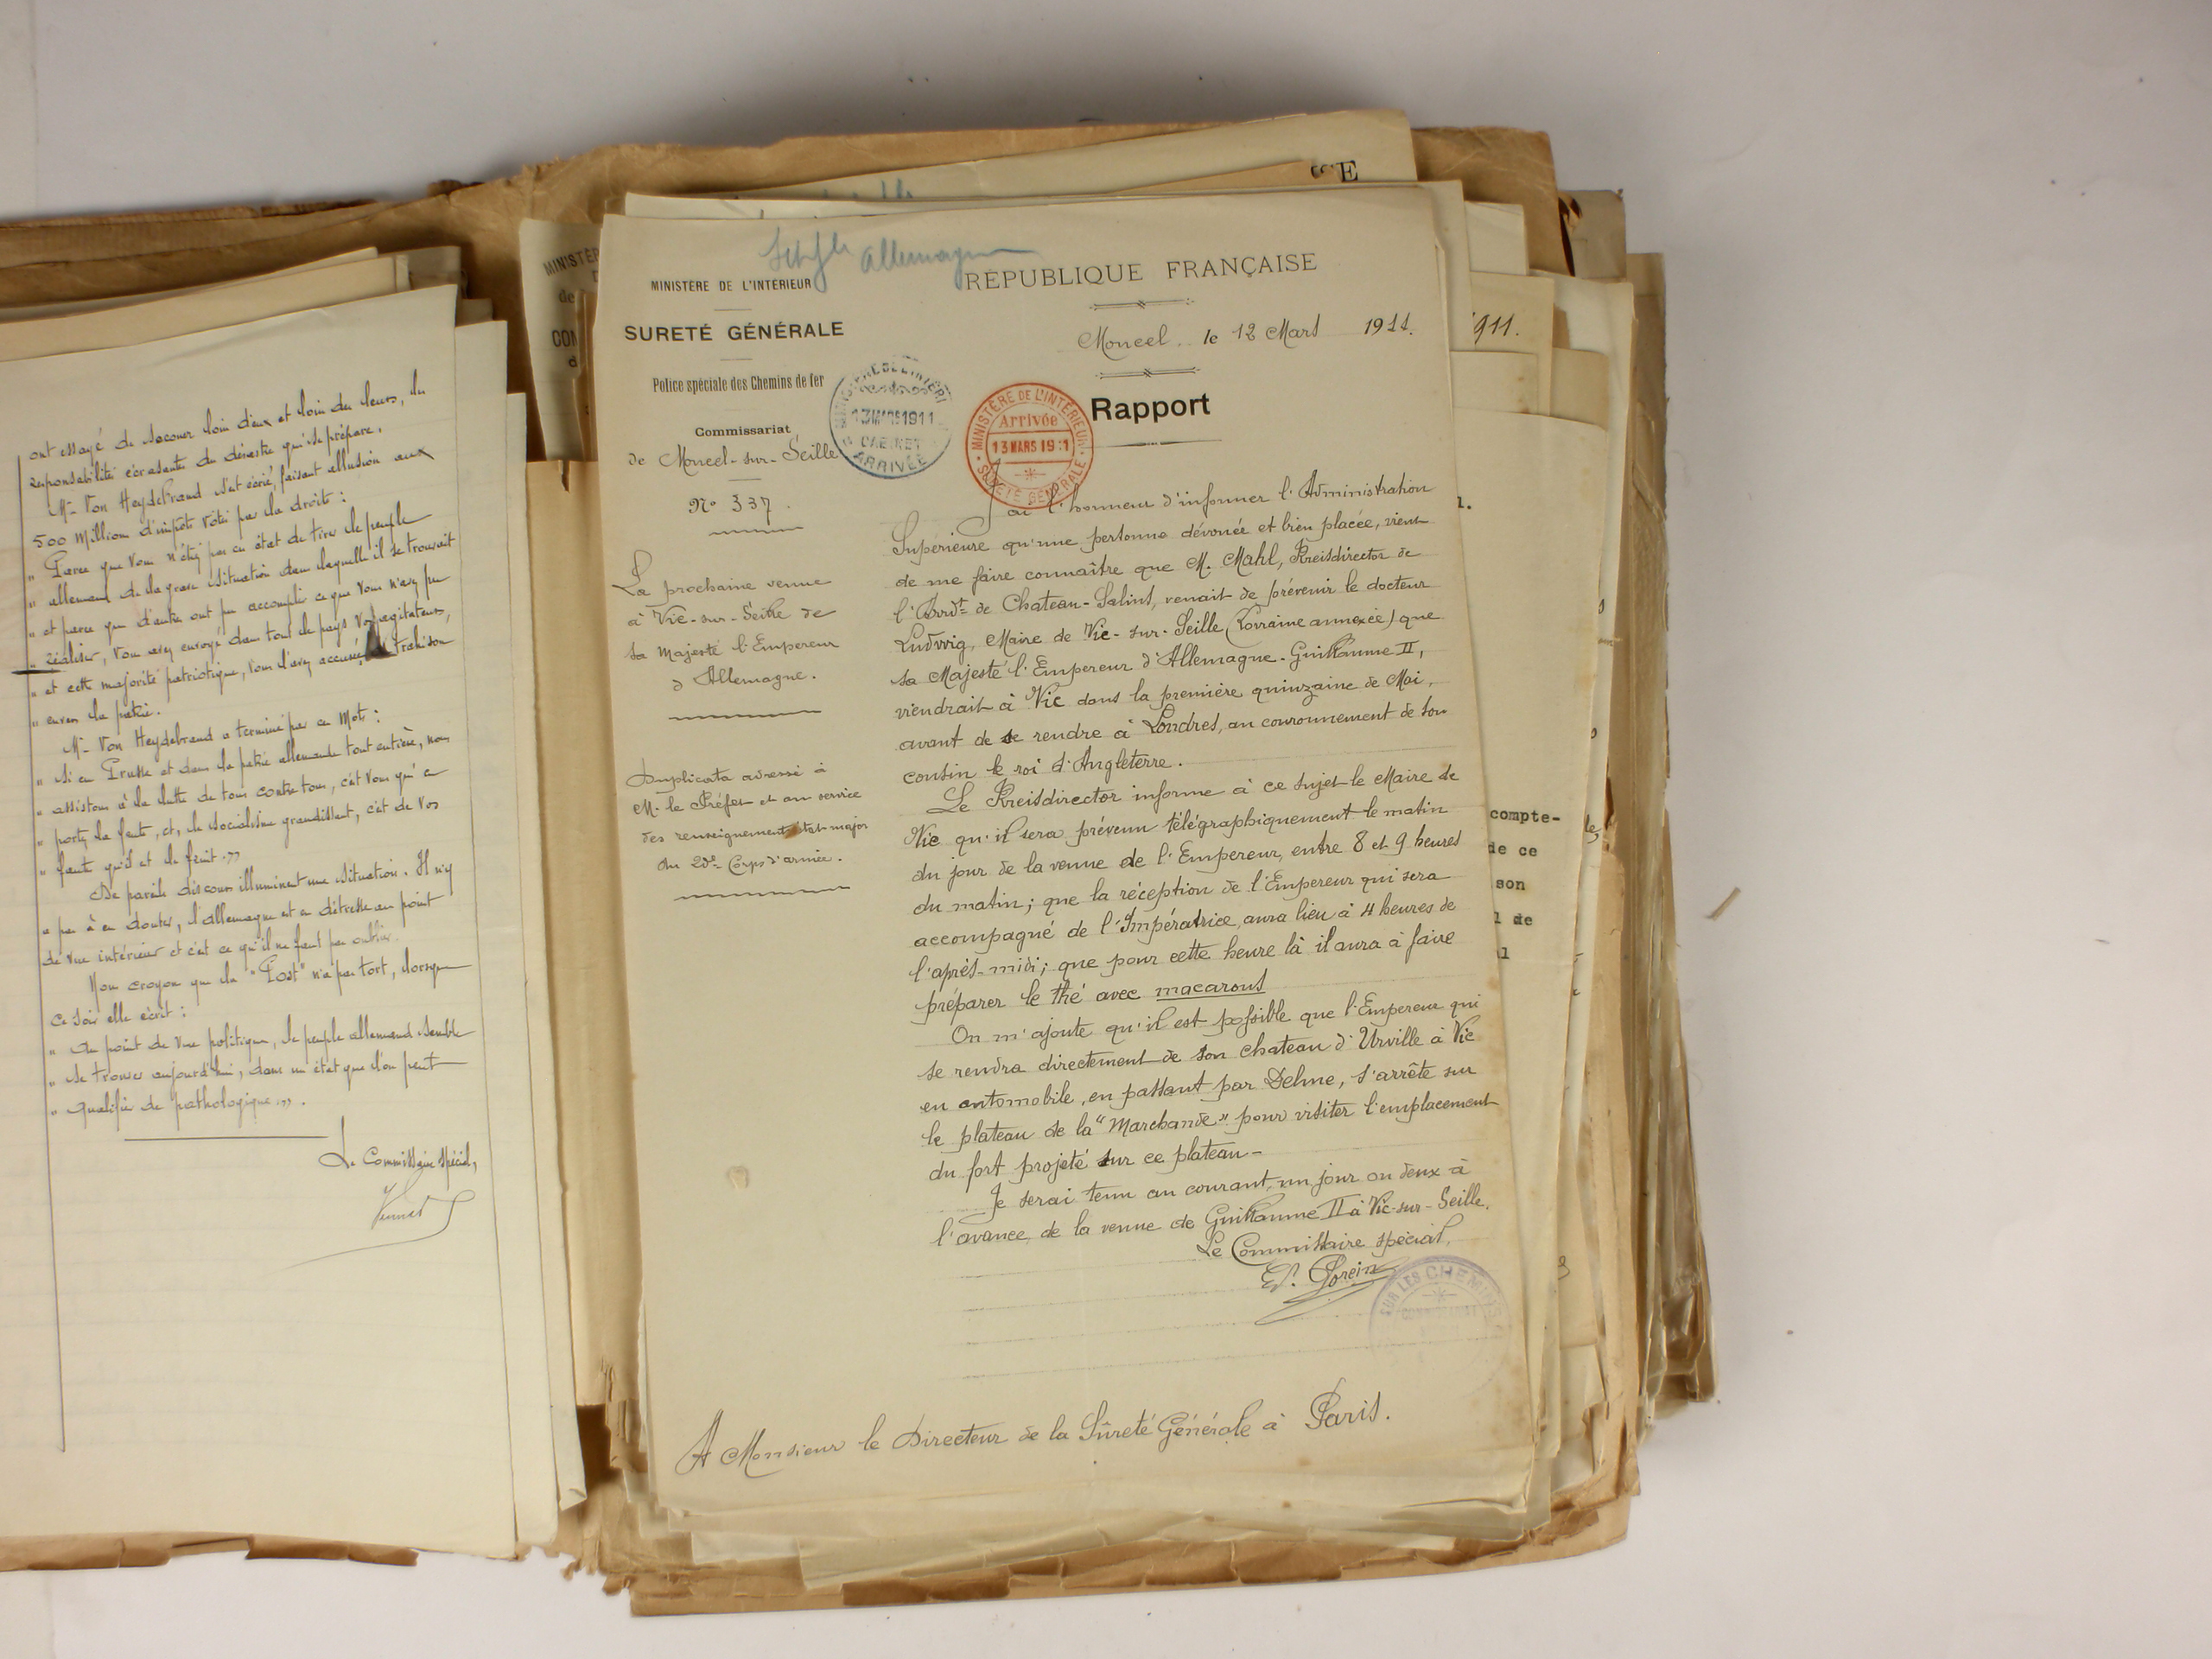 ont essayé de secouer loin d'eux et loin des leurs, les
responsabilités écrasantes du désastre qui se prépare.
Mr Von Heydebrand s'est écrié, faisant allusion aux
500 millions d'impôts votés par la droite :
" Parce que vous n'étiez pas en état de tirer le peuple
" allemand de la grave situation dans laquelle il se trouvait
" et parce que d'autres ont pu accomplir ce que vous n'avez pu
" réaliser, vous avez envoyé dans tout le pays vos agitateurs,
" et cette majorité patriotique, vous l'avez accusée de trahison
" envers la patrie.
Mr Von Heydebrand a terminé par ces mots :
" Si en Prusse et dans la patrie allemande tout entière, nous
" assistons à la lutte de tous contre tous, c'est vous qui en
" portez la faute, et, le socialisme grandissant, c'est de vos
" fautes qu'il est le fruit. "
De pareils discours illuminent une situation. Il n'y
a pas à en douter, l'allemagne est en détresse au point
de vue intérieur et c'est ce qu'il ne faut pas oublier.
Nous croyons que la "Post" n'a pas tort, lorsque
ce soir elle écrit :
" Au point de vue politique, le peuple allemand semble
" se trouver aujourd'hui, dans un état que l'on peut
" qualifier de pathologique. "
Le Commissaire spécial,
MINISTÈR
de
COM
d
E
911.
1.
compte-
de ce
son
l de
al
allemagne
MINISTÈRE DE L'INTÉRIEUR
SURETÉ GÉNÉRALE
Police spéciale des Chemins de fer
Commissariat
de Moncel-sur-Seille
No 337.
13 MARS 1911
CABINET
ARRIVÉE
MINISTÈRE DE L'INTÉRIEUR
Arrivée
13 MARS 1911
SURETÉ GÉNÉRALE
RÉPUBLIQUE FRANÇAISE
Moncel, le 12 Mars 1911.
Rapport
La prochaine venue
à Vic-sur-Seille de
sa Majesté l'Empereur
d'Allemagne.
Duplicata adressé à
M. le Préfet et au service
des renseignements état-major
du 20e Corps d'armée.
J'ai l'honneur d'informer l'Administration
Supérieure qu'une personne dévouée et bien placée, vient
de me faire connaître que M. Mahl, Kreisdirector de
l'Arrdt de Chateau-Salins, venait de prévenir le docteur
Ludwig, Maire de Vic-sur-Seille (Lorraine annexée) que
sa Majesté l'Empereur d'Allemagne. Guillaume II,
viendrait à Vic dans la première quinzaine de Mai,
avant de se rendre à Londres, au couronnement de son
cousin le roi d'Angleterre.
Le Kreisdirector informe à ce sujet le Maire de
Vic qu'il sera prévenu télégraphiquement le matin
du jour de la venue de l'Empereur, entre 8 et 9 heures
du matin; que la réception de l'Empereur qui sera
accompagné de l'Impératrice, aura lieu à 4 heures de
l'après-midi; que pour cette heure là il aura à faire
préparer le thé avec macarons
On m'ajoute qu'il est possible que l'Empereur qui
se rendra directement de son chateau d'Urville à Vic
en automobile, en passant par Delme, s'arrête sur
le plateau de la "Marchande" pour visiter l'emplacement
du fort projeté sur ce plateau-
Je serai tenu au courant, un jour ou deux à
l'avance, de la venue de Guillaume II à Vic-sur-Seille.
Le Commissaire spécial,
SUR LES CHEMINS
COMMISSARIAT
A Monsieur le Directeur de la Sûreté Générale à Paris.